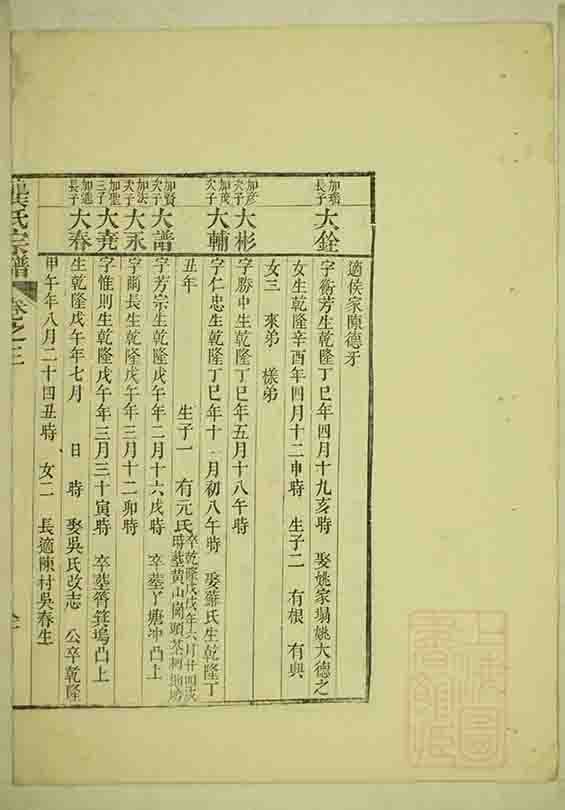 適侯家頤德子
加瑞長子 大銓 字衡芳生乾隆丁巳年四月十九亥時 娶姚家塌姚大德之
女生乾隆辛酉年四月十二申時 生子二 有根 有與
女三 來弟 樣弟
加彥次子 大彬 字勝中生乾隆丁巳年五月十八午時
加茂次子 大輔 字仁忠生乾隆丁巳年十一月初八午時 娶蘇氏生乾隆丁
丑年 生子一 有元氏卒乾隆戊戌年六月廿四戌時葬黄山崗頭
加賢次子 大譜 字芳宗生乾隆戊午年二月十六戌時 卒葬丫塘冲凸上
加法次子 大永 字爾長生乾隆戊午年三月十二卯時
加聖三子 大堯 字惟則生乾隆戊午年三月三十寅時 卒葬筲箕塢凸上
加進長子 大春 生乾隆戊午年七月 日 時 娶吳氏改志 公卒乾隆
甲午年八月二十四丑時 女二 長適陳村吳春生
氏宗譜 卷之三
上海圖書館藏